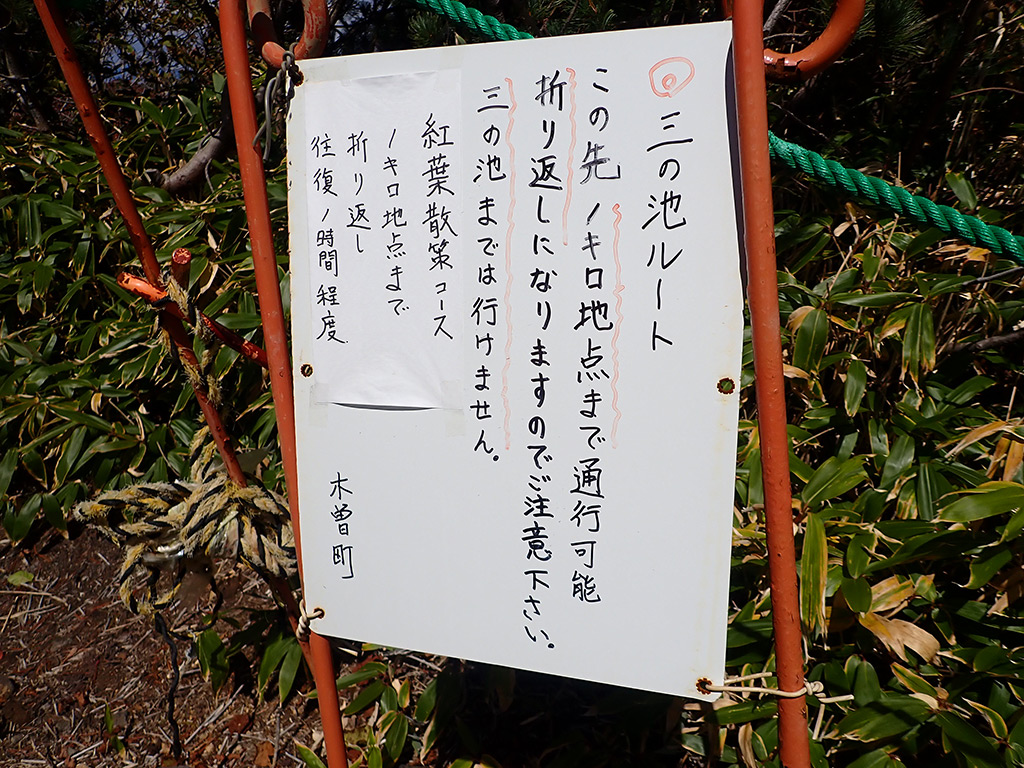 ◎ 三の池ルート
この先1キロ地点まで通行可能
折り返しになりますのでご注意下さい。
三の池までは行けません。
紅葉散策コース
1キロ地点まで
折り返し
往復1時間程度
木曽町